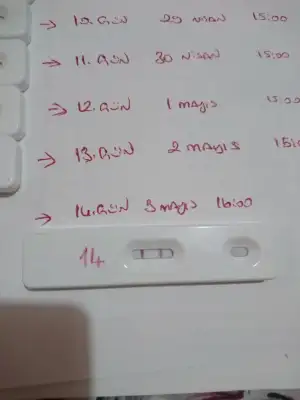 → 10. GÜN 29 NİSAN 15:00
→ 11. GÜN 30 NİSAN 15:00
→ 12. GÜN 1 MAYIS 15:00
→ 13. GÜN 2 MAYIS 15:
→ 14. GÜN 3 MAYIS 16:00
14